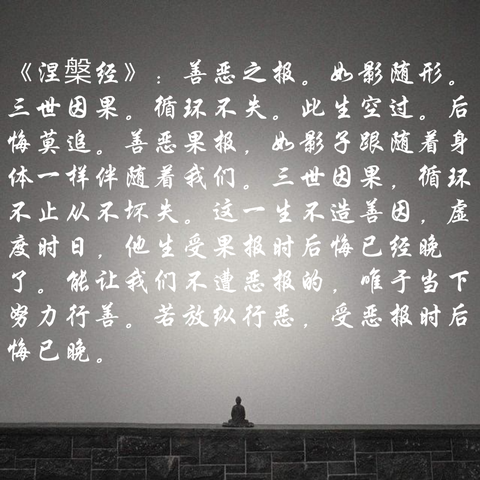 《涅槃经》：善恶之报。如影随形。
三世因果。循环不失。此生空过。后
悔莫追。善恶果报，如影子跟随着身
体一样伴随着我们。三世因果，循环
不止从不坏失。这一生不造善因，虚
度时日，他生受果报时后悔已经晚
了。能让我们不遭恶报的，唯于当下
努力行善。若放纵行恶，受恶报时后
悔已晚。